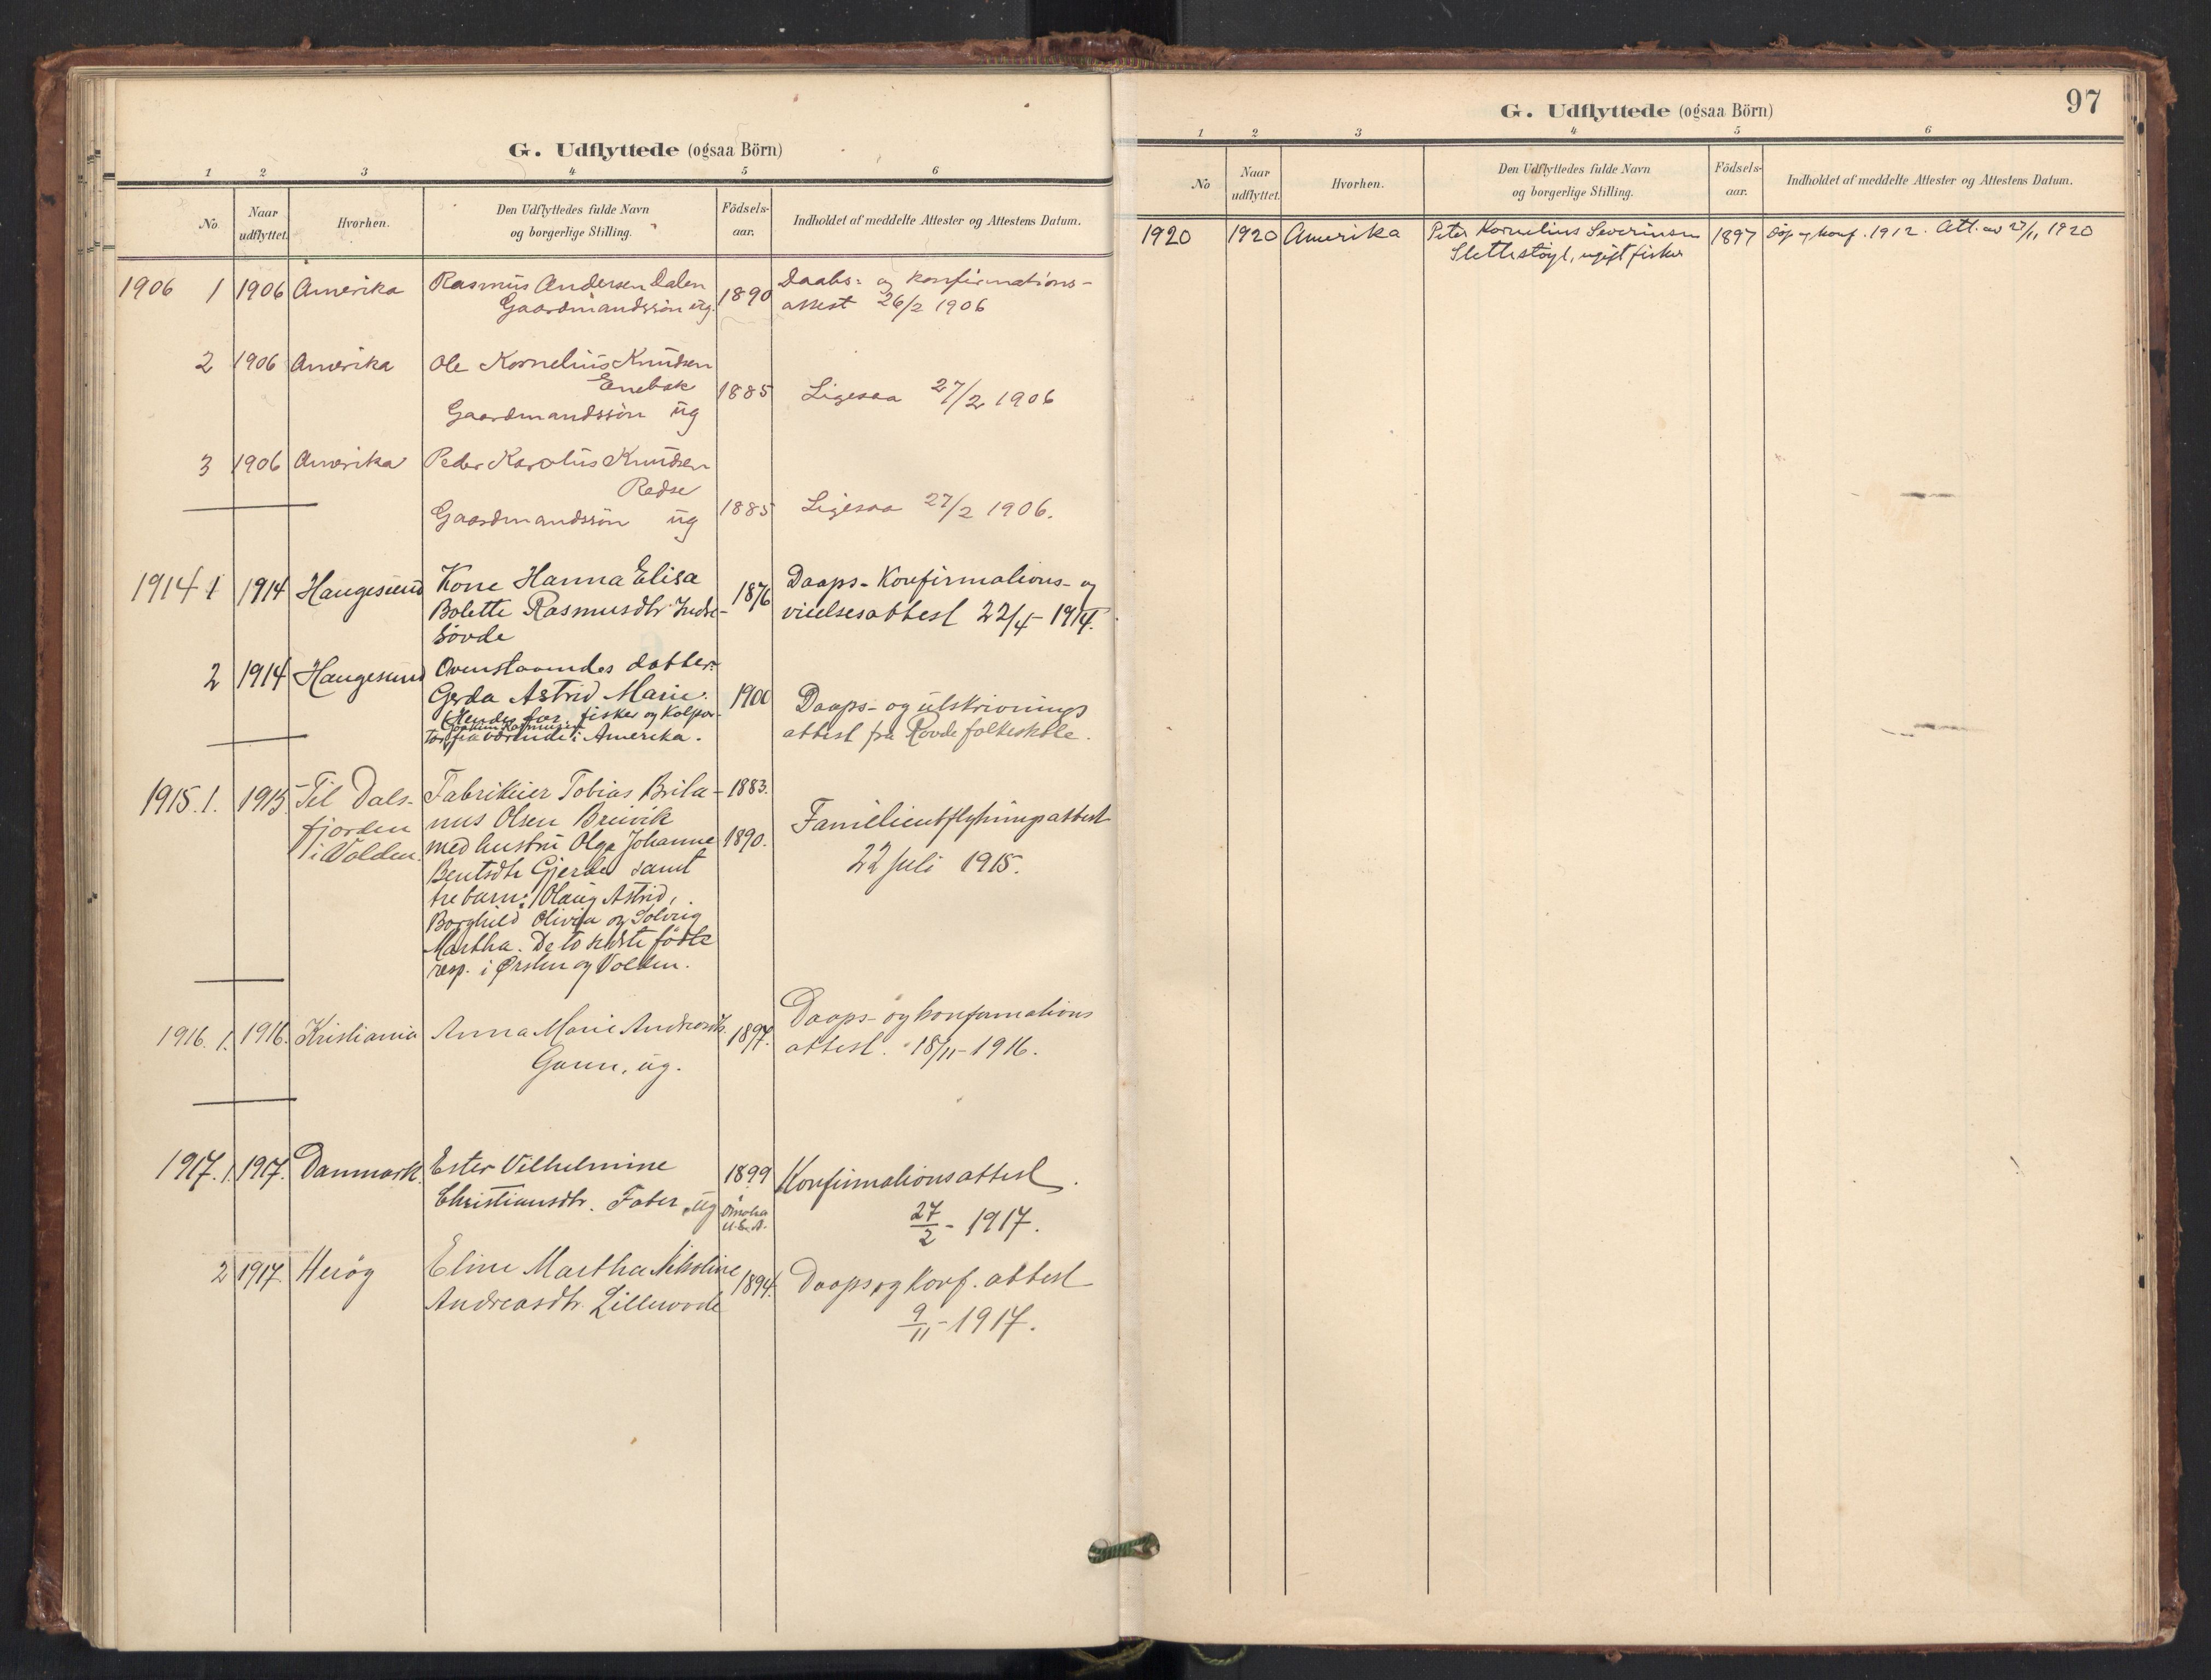 G. Udflyttede (ogsaa Börn)
1 2 3 4 5 6
No. Naar udflyttet. Hvorhen. Den Udflyttedes fulde Navn og borgerlige Stilling. Födsels-aar. Indholdet af meddelte Attester og Attestens Datum.
1906 1 1906 Amerika Rasmus Andersen Dalen 1890 Daabs- og konfirmations-
Gaardmandssön ug. attest 26/2 1906
2 1906 Amerika Ole Kornelius Knudsen
Enebak 1885 Ligesaa 27/2 1906
Gaardmandssön ug
3 1906 Amerika Peder Karolus Knudsen
Redse
Gaardmandssön ug 1885 Ligesaa 27/2 1906.
1914 1 1914 Haugesund Kone Hanna Elisa 1876 Daaps- Konfirmations- og
Bolette Rasmusdtr Indre- vielsesattest 22/4 - 1914.
Sövde
2 1914 Haugesund Ovenstaaendes datter:
Gerda Astrid Marie. 1900 Daaps- og utskrivnings
(Hendes far, fisker og Kolpor- attest fra Rovde folkeskole.
Joakim Rasmussen
tör fraværende i Amerika.
1915. 1. 1915 Til Dals- Fabrikeier Tobias Brila- 1883.
fjorden nus Olsen Breivik Familieutflytningsattest
i Volden. med hustru Olga Johanne 1890.
Bentsdtr Gjerde samt 22 juli 1915.
tre barn: Olaug Astrid,
Borghild Olivia og Solveig
Martha. De to sidste födte
resp. i Ørsten og Volden.
1916. 1. 1916. Kristiania Anna Marie Andreasdtr. 1897. Daaps- og konfirmations
ug. attest. 18/11 - 1916.
1917. 1. 1917. Danmark. Ester Vilhelmine 1899 Konfirmationsattest.
Christiansdtr. Faber, ug Omaha U.S.A. 27/2 - 1917.
2 1917 Herøy Eline Martha Nikoline 1894. Daaps og Konf. attest
Andreasdtr. Lillerovde 9/11 - 1917.
97
G. Udflyttede (ogsaa Börn)
1 2 3 4 5 6
No Naar udflyttet. Hvorhen. Den Udflyttedes fulde Navn og borgerlige Stilling. Födsels-aar. Indholdet af meddelte Attester og Attestens Datum.
1920 1920 Amerika Peter Kornelius Severinsen 1897 Döp og konf. 1912. Att. av 27/11 1920
Slettestöyl, ugift fisker